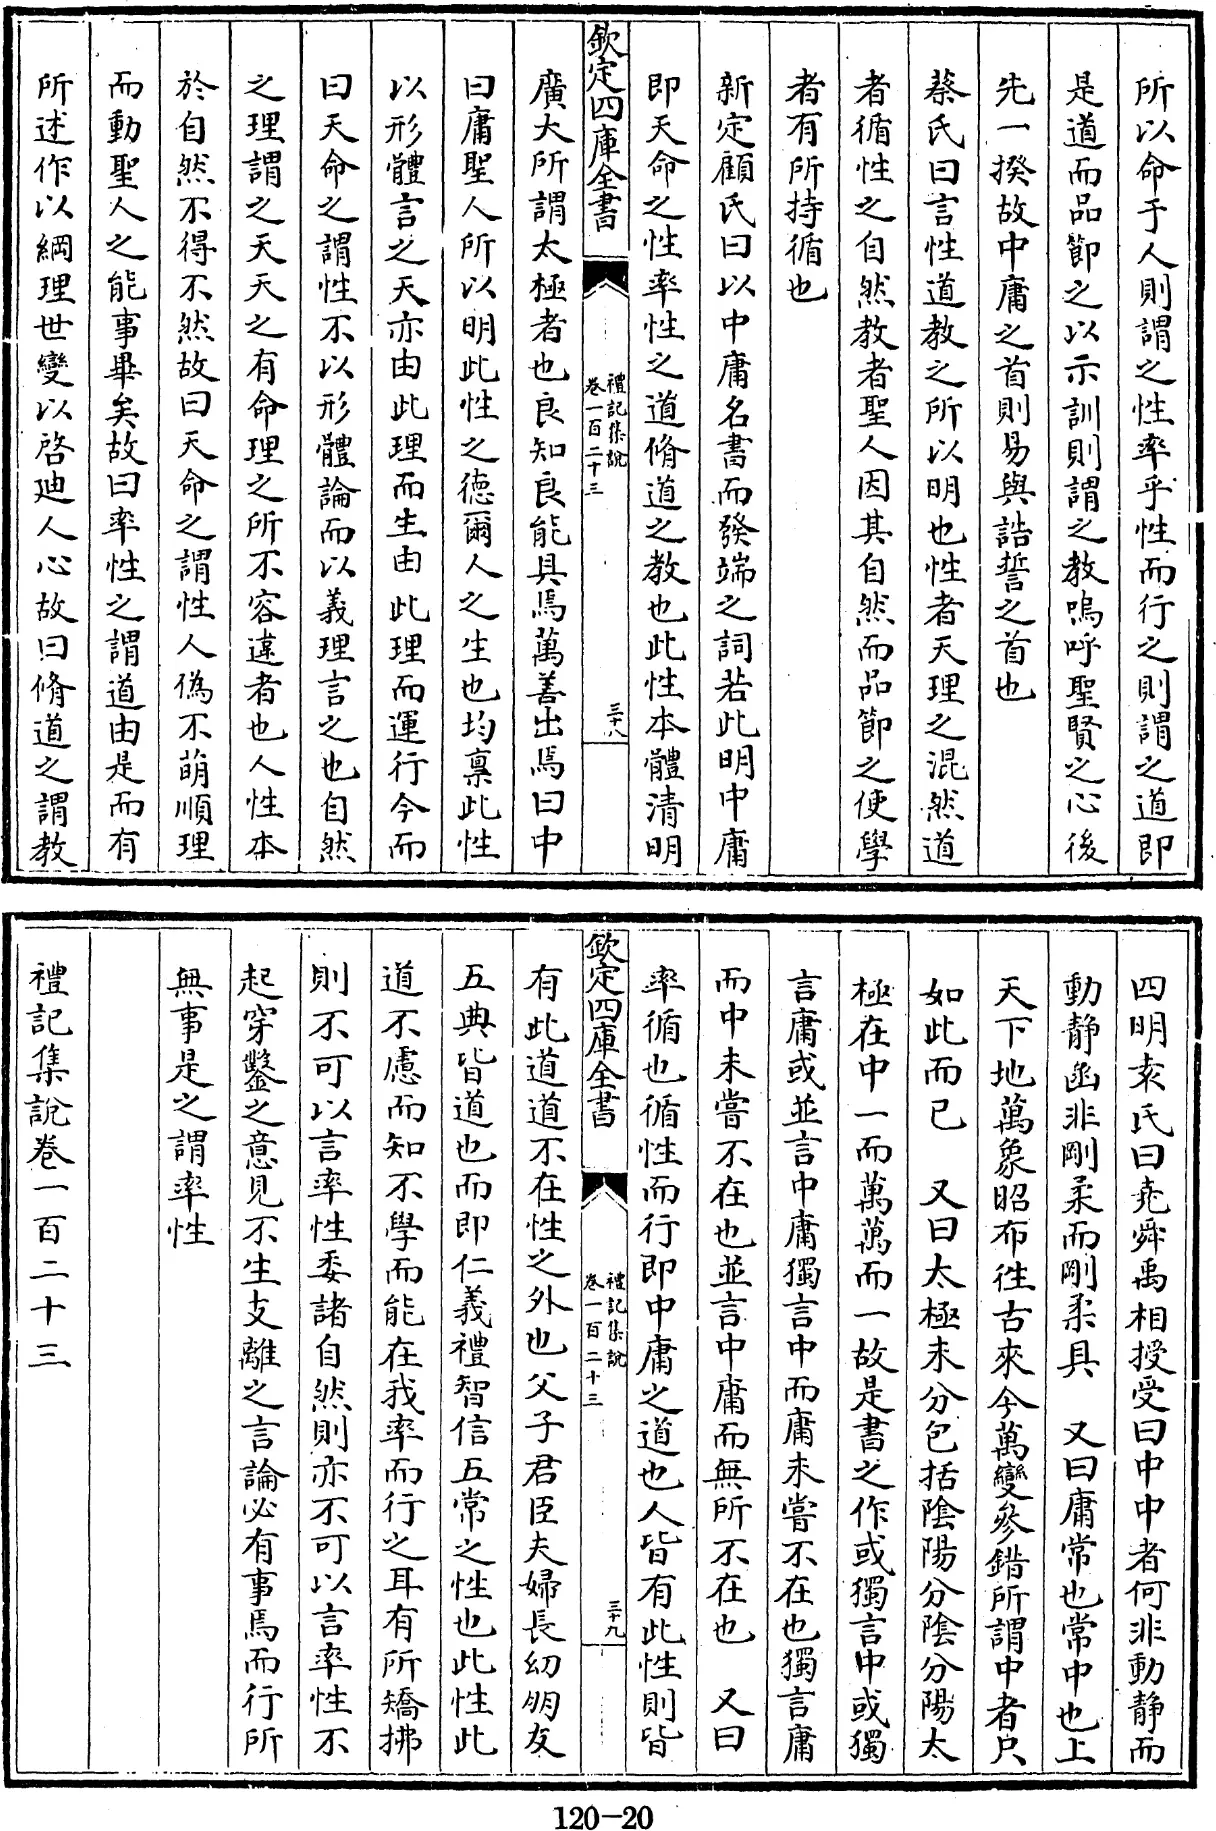 所以命于人則謂之性率乎性而行之則謂之道即
是道而品節之以示訓則謂之教嗚呼聖賢之心後
先一揆故中庸之首則易與誥誓之首也
蔡氏曰言性道教之所以明也性者天理之混然道
者循性之自然教者聖人因其自然而品節之使學
者有所持循也
新定顧氏曰以中庸名書而發端之詞若此明中庸
即天命之性率性之道脩道之教也此性本體清明
欽定四庫全書
禮記集說
卷一百二十三
三十八
廣大所謂太極者也良知良能具焉萬善出焉曰中
曰庸聖人所以明此性之德爾人之生也均稟此性
以形體言之天亦由此理而生由此理而運行今而
曰天命之謂性不以形體論而以義理言之也自然
之理謂之天天之有命理之所不容違者也人性本
於自然不得不然故曰天命之謂性人偽不萌順理
而動聖人之能事畢矣故曰率性之謂道由是而有
所述作以綱理世變以啓廸人心故曰脩道之謂教
四明袁氏曰堯舜禹相授受曰中中者何非動靜而
動靜函非剛柔而剛柔具　又曰庸常也常中也上
天下地萬象昭布徃古來今萬變參錯所謂中者只
如此而已　又曰太極未分包括陰陽分陰分陽太
極在中一而萬萬而一故是書之作或獨言中或獨
言庸或並言中庸獨言中而庸未嘗不在也獨言庸
而中未嘗不在也並言中庸而無所不在也　又曰
率循也循性而行即中庸之道也人皆有此性則皆
欽定四庫全書
禮記集說
卷一百二十三
三十九
有此道道不在性之外也父子君臣夫婦長幼朋友
五典皆道也而即仁義禮智信五常之性也此性此
道不慮而知不學而能在我率而行之耳有所矯拂
則不可以言率性委諸自然則亦不可以言率性不
起穿鑿之意見不生支離之言論必有事焉而行所
無事是之謂率性
禮記集說卷一百二十三
120-20